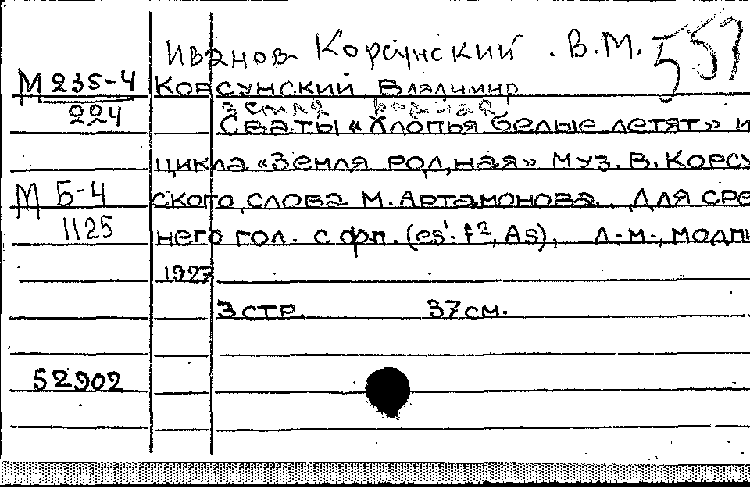 Иванов Корсунский. В.М. 557
М 235-4 Корсунский Владимир
224 Земля родная
Сваты «Хлопья белые летят» и
цикла «Земля родная» муз. В. Корсу
М Б-4 ского, слова М. Артамонова. Для сре
1125 него гол. с фп. (es¹-f², As), Л-М,
1927
3 стр. 37 см.
52902